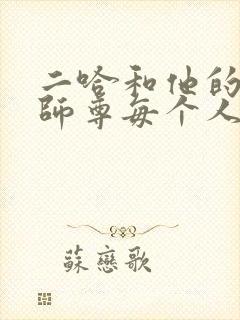 二哈和他的
師尊每个人
蘇戀歌